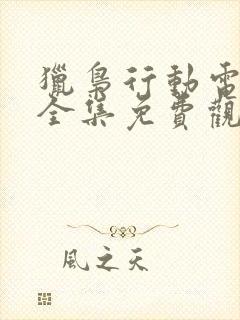 獵梟行動電
全集免費觀
風之天